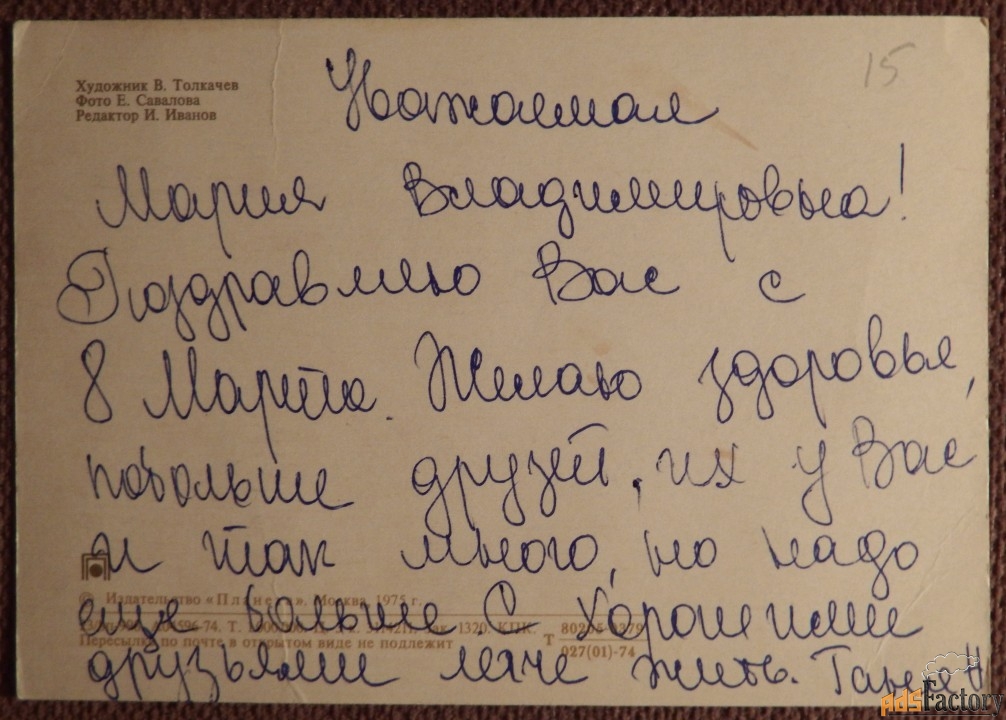 15
Художник В. Толкачев
Фото Е. Савалова
Редактор И. Иванов
Уважаемая
Мария Владимировна!
Поздравляю Вас с
8 Марта. Желаю здоровья,
побольше друзей, их у Вас
и так много, но надо
© Издательство «Планета». Москва. 1975 г.
еще больше С хорошими
1320. КПК.
Пересылке по почте в открытом виде не подлежит
Т
027(01)-74
друзьями легче жить.
AdsFactory